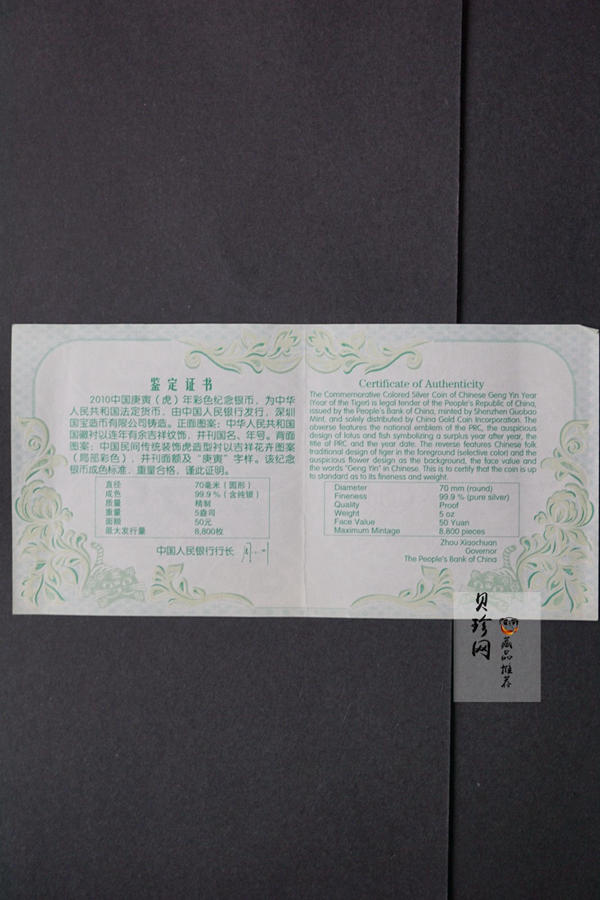 鉴定证书
2010中国庚寅（虎）年彩色纪念银币，为中华
人民共和国法定货币，由中国人民银行发行，深圳
国宝造币有限公司铸造。正面图案：中华人民共和国
国徽衬以连年有余吉祥纹饰，并刊国名、年号。背面
图案：中国民间传统装饰虎造型衬以吉祥花卉图案
（局部彩色），并刊面额及“庚寅”字样。该纪念
银币成色标准，重量合格，谨此证明。
直径 70毫米（圆形）
成色 99.9%（含纯银）
质量 精制
重量 5盎司
面额 50元
最大发行量 8,800枚
中国人民银行行长
Certificate of Authenticity
The Commemorative Colored Silver Coin of Chinese Geng Yin Year
(Year of the Tiger) is legal tender of the People's Republic of China,
issued by the People's Bank of China, minted by Shenzhen Guobao
Mint, and solely distributed by China Gold Coin Incorporation. The
obverse features the national emblem of the PRC, the auspicious
design of lotus and fish symbolizing a surplus year after year, the
title of PRC and the year date. The reverse features Chinese folk
traditional design of tiger in the foreground (selective color) and the
auspicious flower design as the background, the face value and
the words "Geng Yin" in Chinese. This is to certify that the coin is up
to standard as to its fineness and weight.
Diameter 70 mm (round)
Fineness 99.9 % (pure silver)
Quality Proof
Weight 5 oz
Face Value 50 Yuan
Maximum Mintage 8,800 pieces
Zhou Xiaochuan
Governor
The People's Bank of China
贝珍网
藏品推荐